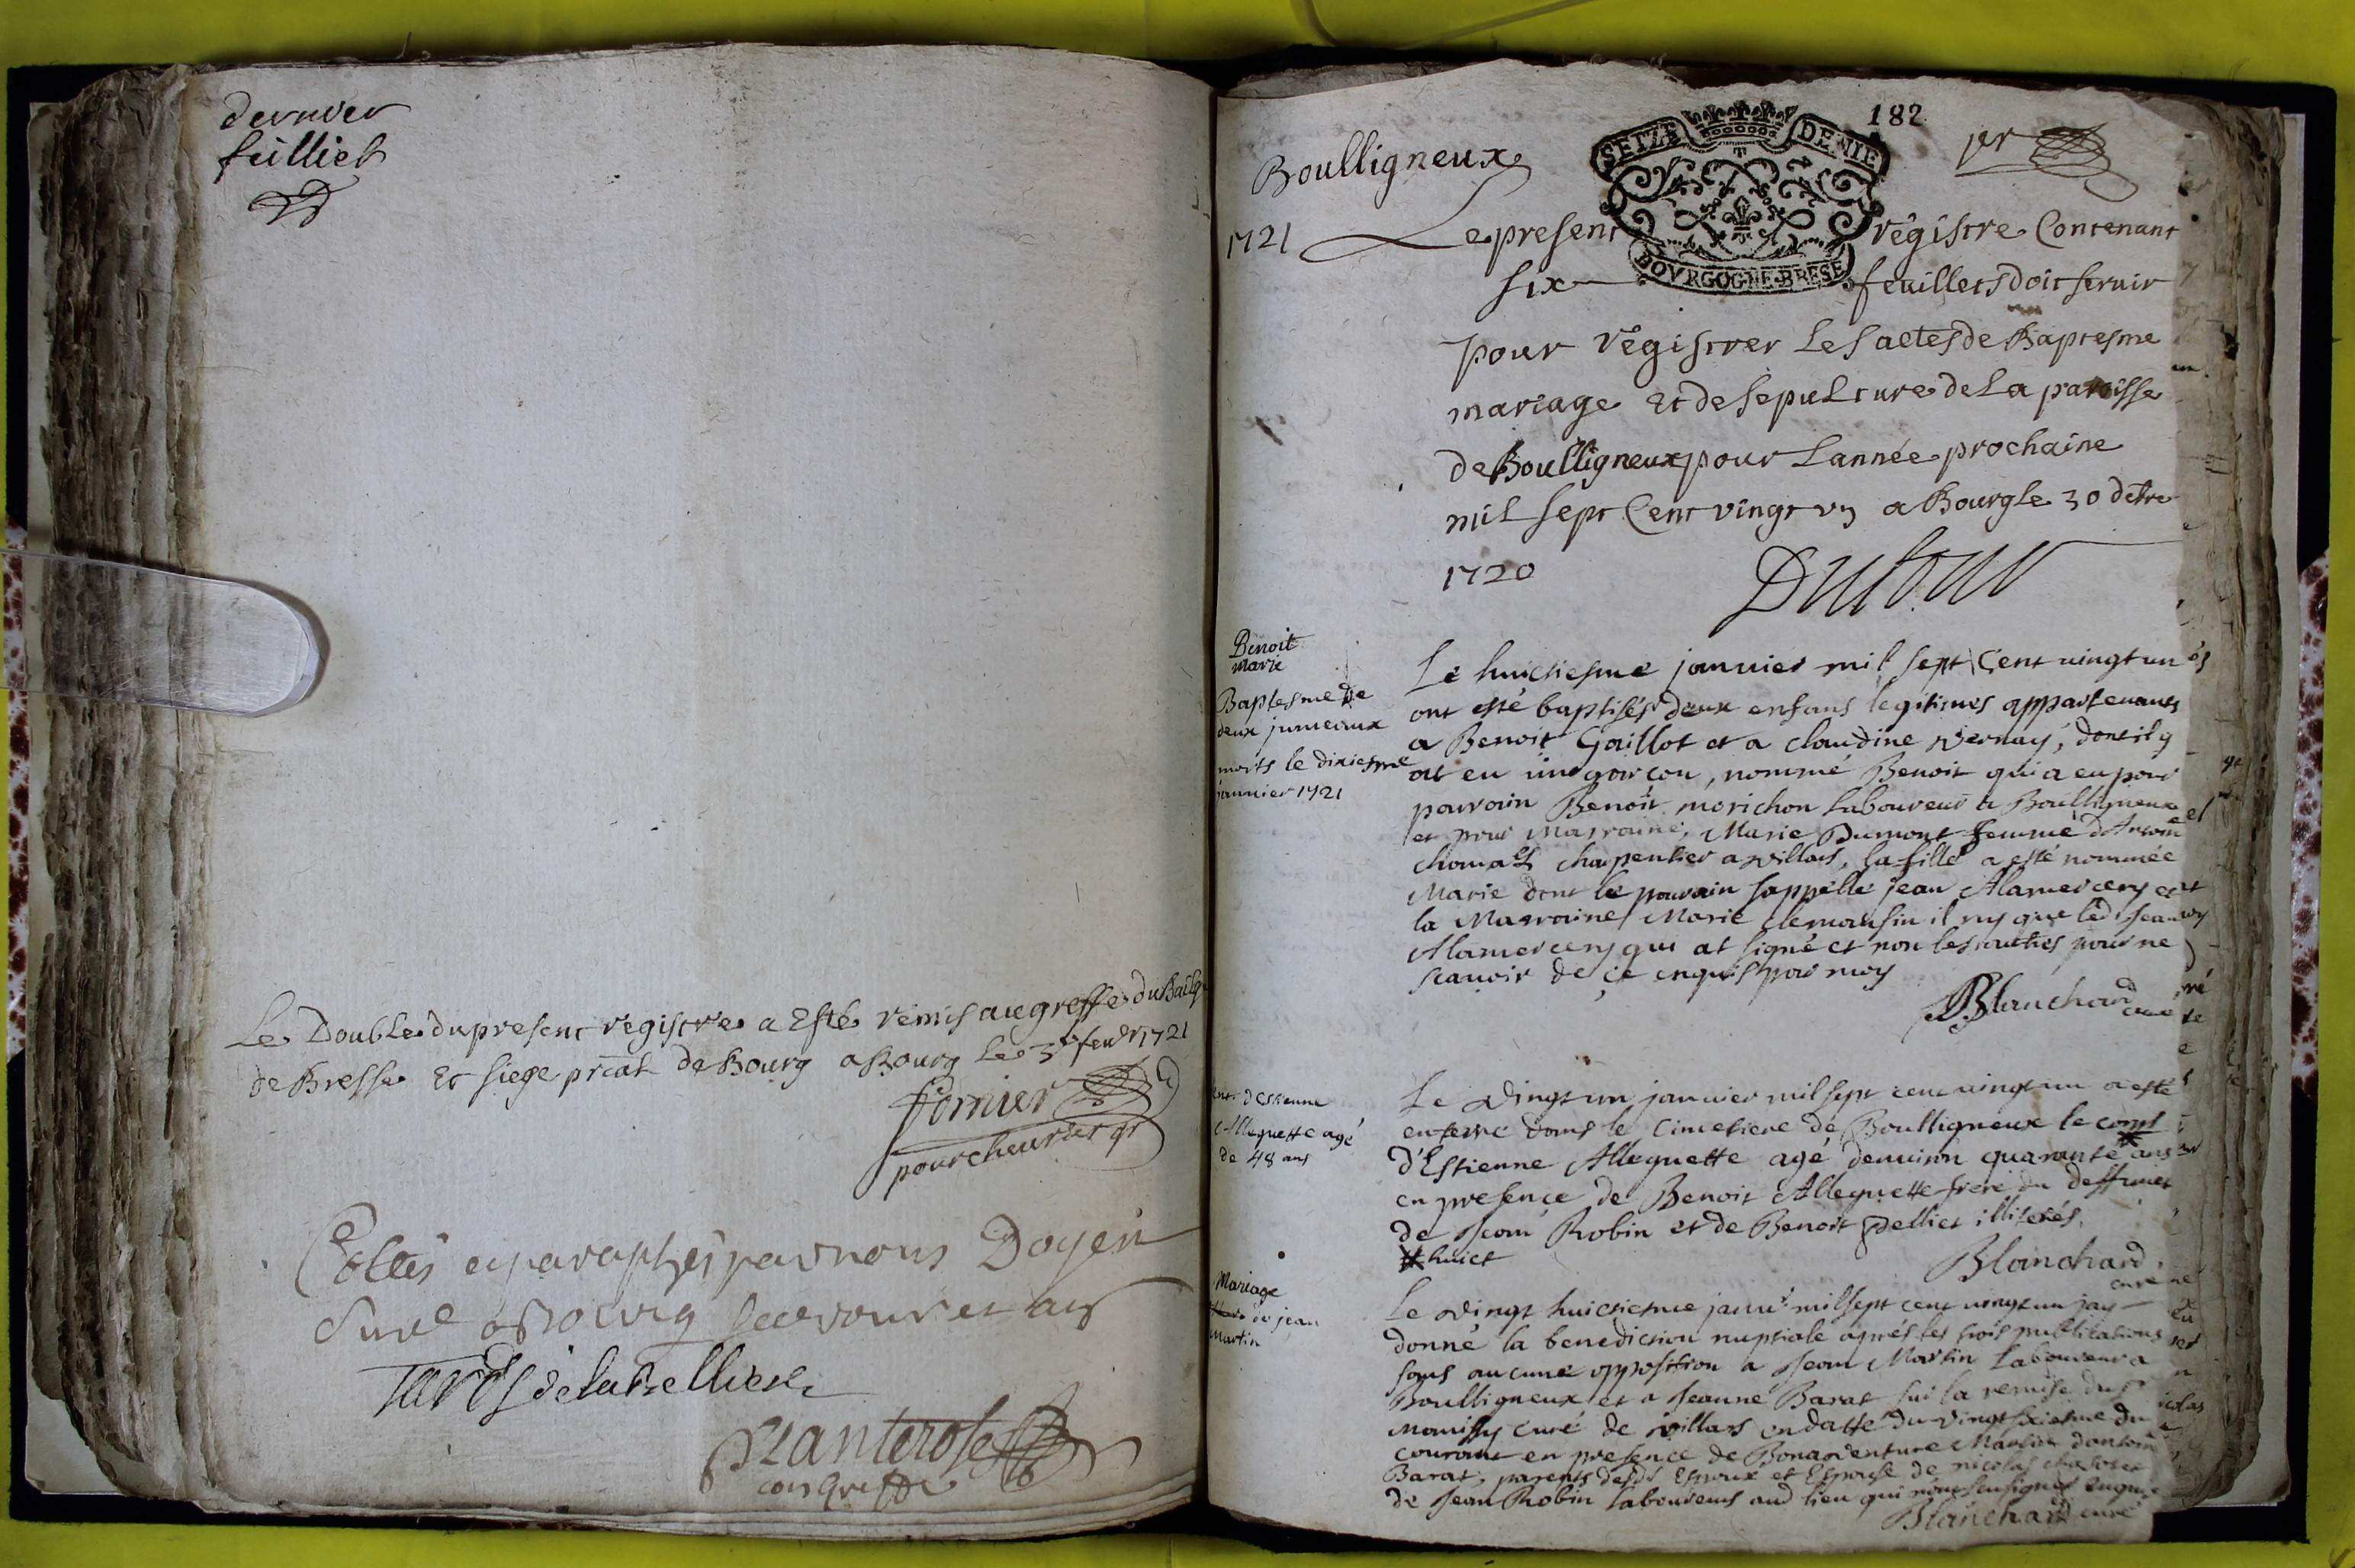 dernier
feülliet
Le Double du present registre a Esté remis au greffe du Bailg
de Bresse Et siege pñal de Bourg a Bourg le 3e feur 1721
fornier
pour cheurier gr
Cottés et paraphés par nous Doyen
a Bourg
Planterose
con greffe
182
per
Boulligneux
SEIZE DENIE
1721 Le present registre Contenant
BOVRGOGNE BRESE
six feuillets doit seruir
pour régistrer Les actes de Baptesme
mariage Et de sepulture de La paroisse
de Boulligneux pour Lannée prochaine
mil sept Cent vingt vn a Bourg le 30 debre
1720
Dufour
Benoit
Marie
Baptesme de
deux jumeaux
morts le dixiesme
januier 1721
Le huictiesme januier mil sept Cent uingt un
ont esté baptisés deux enfans legitimes appartenants
a Benoit Gaillot et a claudine Vernay, dont il y
at eu un garçon, nommé Benoit qui a eu pour
parrain Benoît morichon laboureur a Boulligneux
et pour Marraine, Marie Dumont femme d'Antoin
chomat charpentier a villars, la fille a esté nommée
Marie dont le parrain sappelle jean Alamercery et
la Marraine Marie il ny que led Jean
Alamercery qui at signé et non les autres pour ne
scauoir de çe enquis par moy
Blanchard
curé
ent d'Estienne
Alleguette agé
de 48 ans
Le Vingt un januier mil sept cent uingt un a esté
enterré dans le Cimetiere de Boulligneux le corps
d'Estienne Alleguette agé denuiron quarante ans
en presence de Benoit Alleguette frere du deffunct
de Jean Robin et de Benoit Pelliet illiterés
# huict
Blanchard
curé
Mariage
de jean
Martin
Le Vingt huictiesme januir mil sept cent uingt un jay
donné la benediction nuptiale aprés les trois publications
sans aucune opposition a Jean Martin laboureur a
Boulligneux et a Jeanne Barat sur la remise du sr
Momissy curé de villars en datte du vingt sixiesme du
courant en presence de Bonaventure Martin dantoin
Barat, parents desds Espoux et Espouse de nicolas et
de Jean Robin laboureurs aud lieu qui nont sceu signer enquis
Blanchard curé